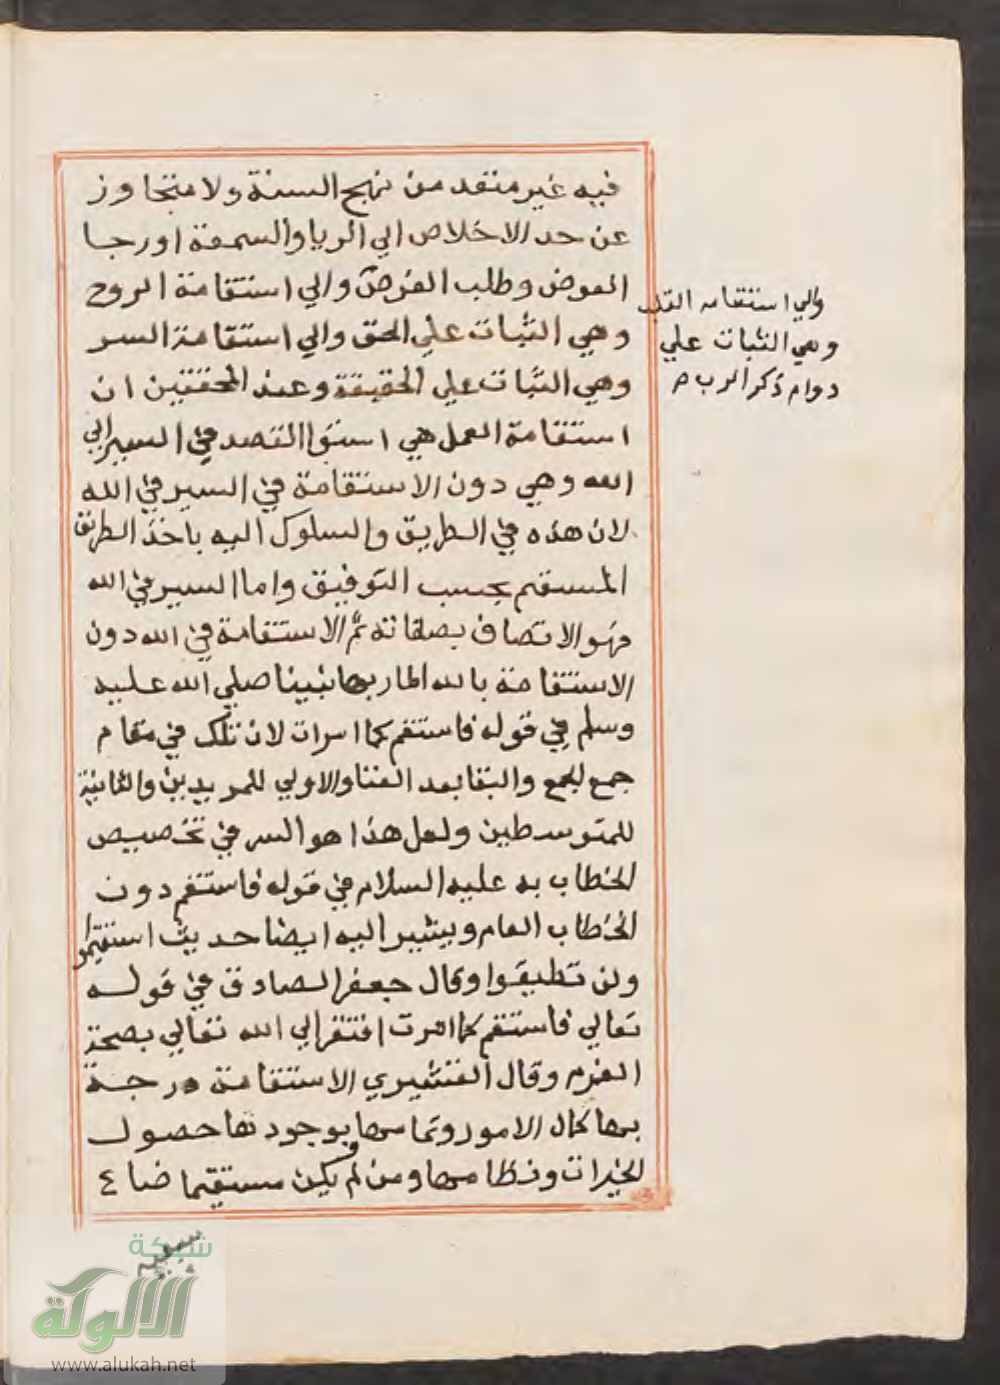 فيه غير متعد من نهج السنة ولا متجاوز
عن حد الاخلاص الي الريا والسمعة اورجا
العوض وطلب الغرض والي استقامة الروح
وهي الثبات علي الحق والي استقامة السر
وهي الثبات علي الحقيقة وعند المحققين ان
استقامة العمل هي استوا القصد في السير الي
الله وهي دون الاستقامة في السير في الله
لان هذه في الطريق والسلوك اليه باخذ الطريق
المستقيم بحسب التوفيق واما السير في الله
فهو الاتصاف بصفاته ثم الاستقامة في الله دون
الاستقامة بالله المار بها نبينا صلي الله عليه
وسلم في قوله فاستقم كما امرت لان تلك في مقام
جمع الجمع والبقا بعد الفنا والاولي للمريدين والثانية
للمتوسطين ولعل هذا هو السر في تخصيص
الخطاب به عليه السلام في قوله فاستقم دون
الخطاب العام ويشير اليه ايضا حديث استقيموا
ولن تطيقوا وقال جعفر الصادق في قوله
تعالي فاستقم كما امرت افتقر الي الله تعالي بصحة
العزم وقال القشيري الاستقامة درجة
بها كمال الامور وتمامها وبوجودها حصول
الخيرات ونظامها ومن لم يكن مستقيما ضاع
سعيه
والي استقامه القلب
وهي الثبات علي
دوام ذكر الرب م
شبكة
الألوكة
www.alukah.net